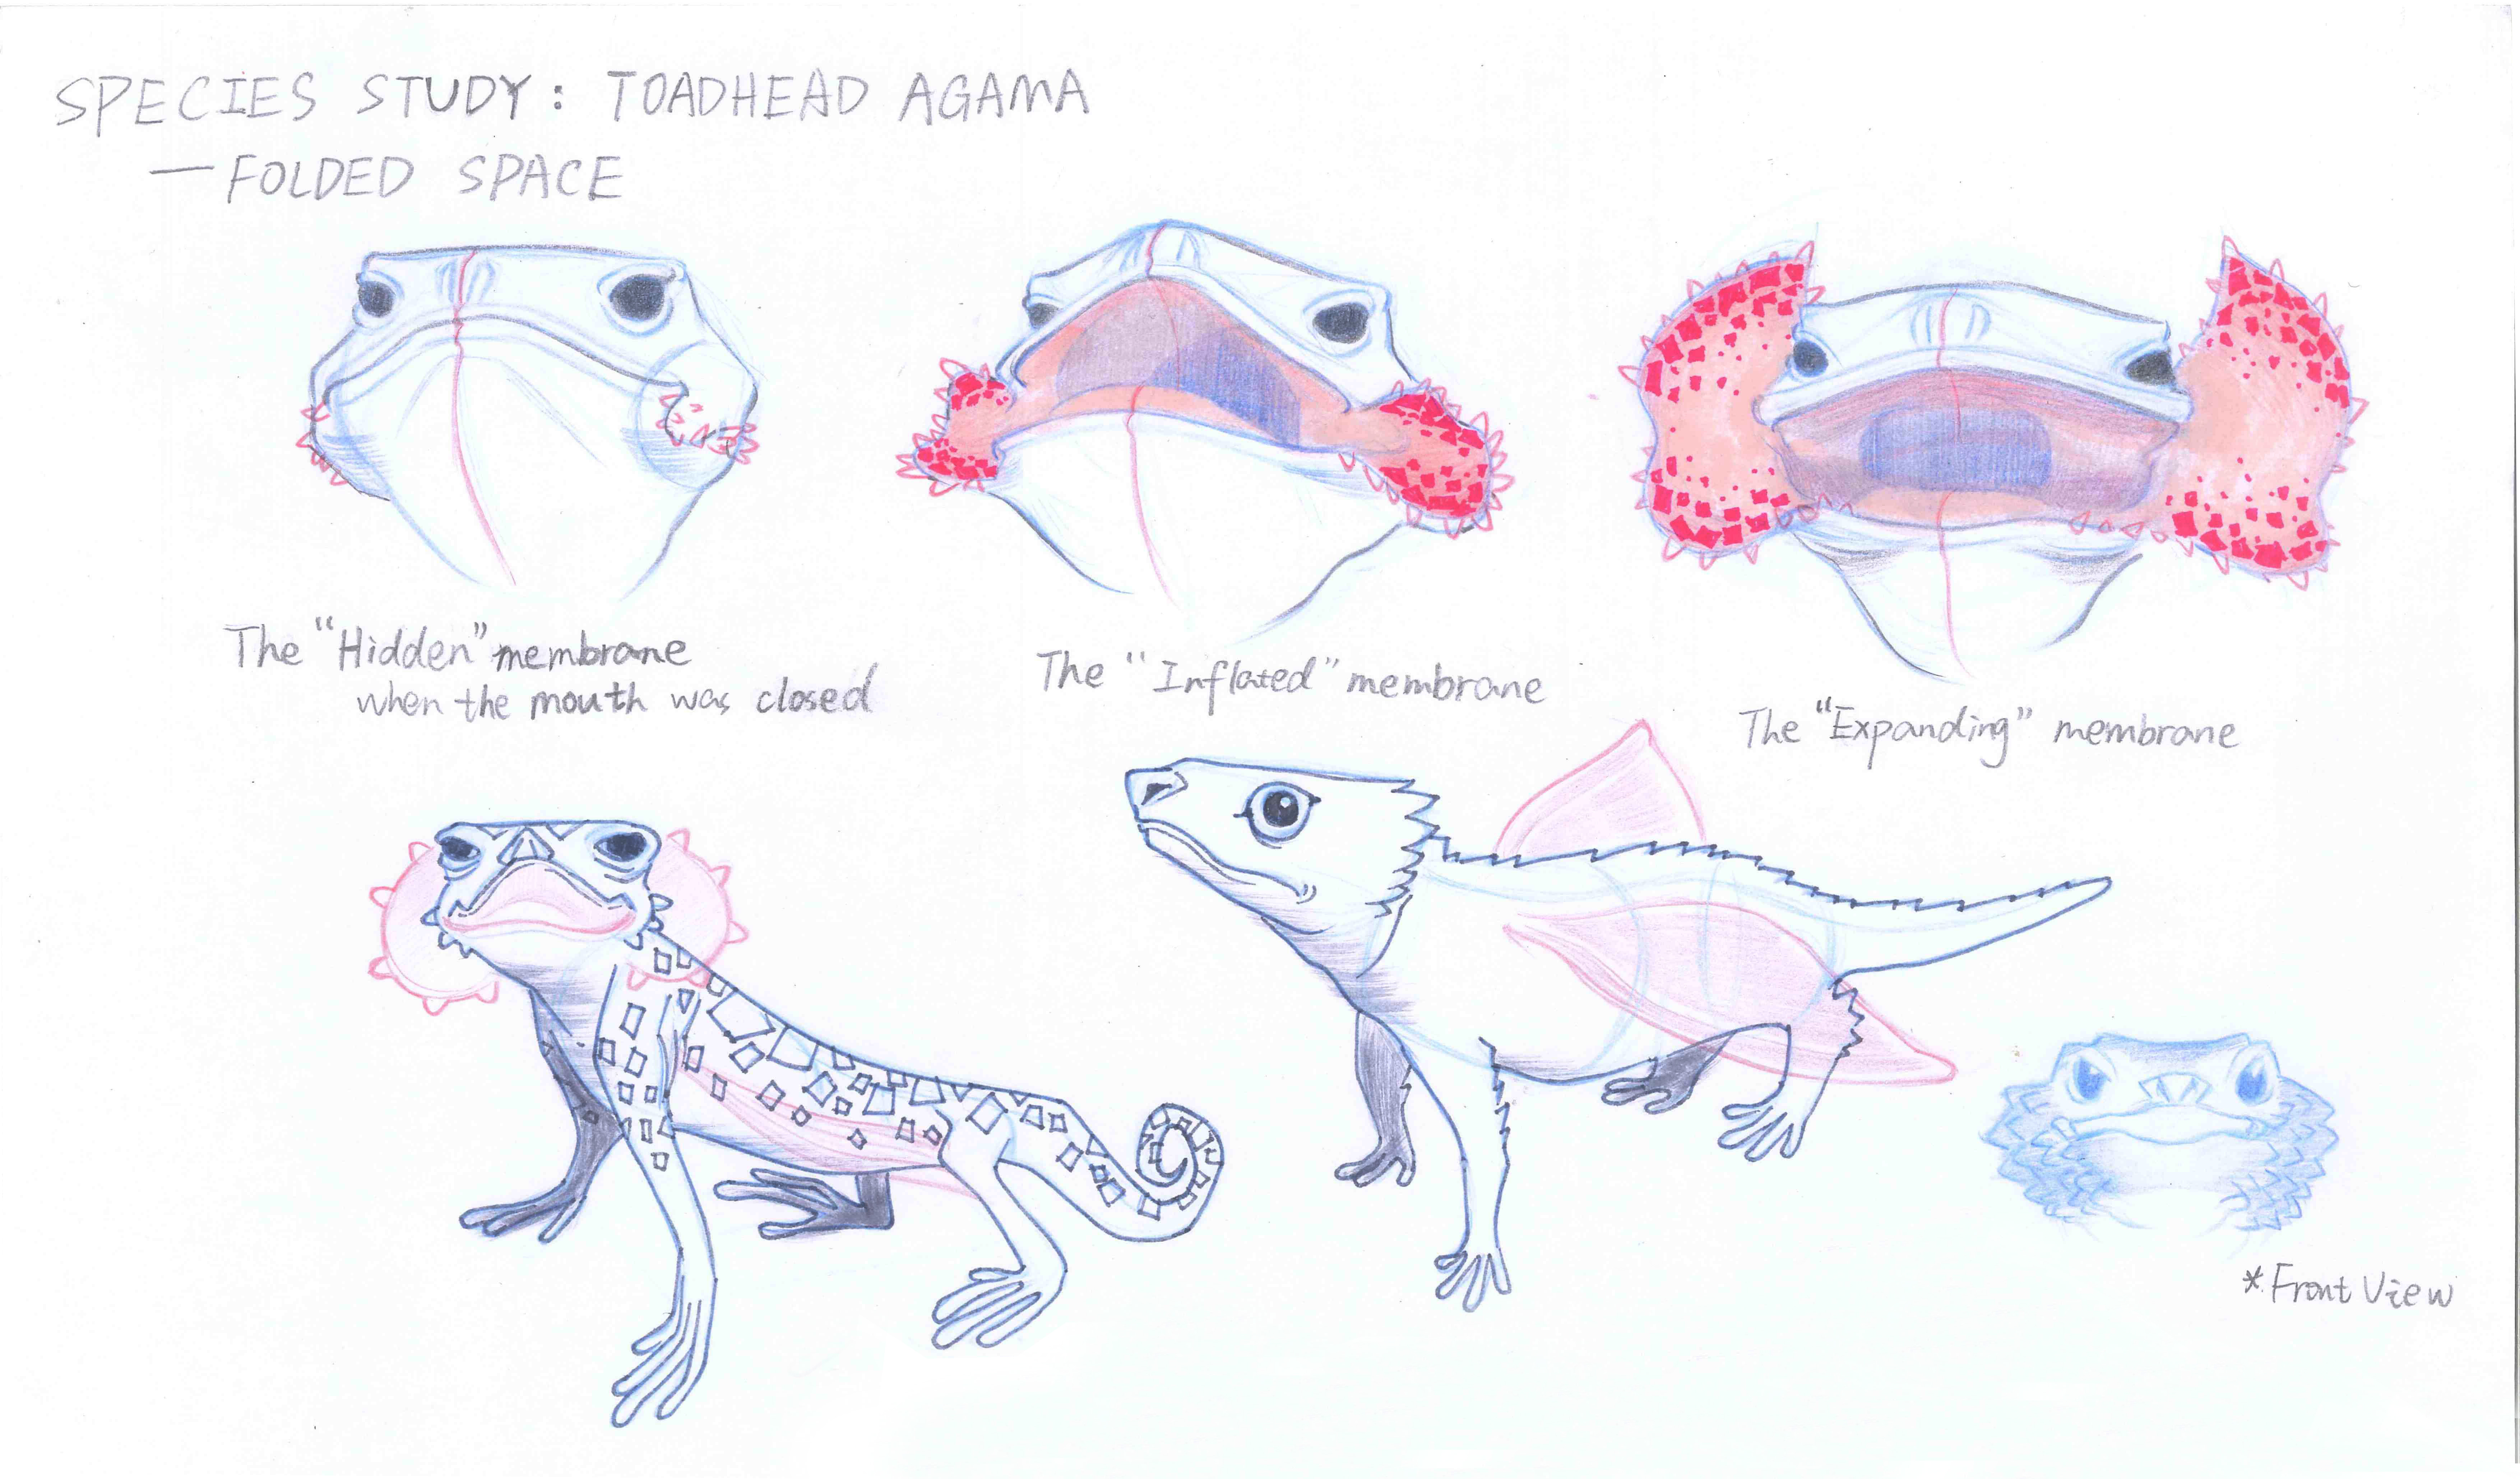 SPECIES STUDY: TOADHEAD AGAMA
—FOLDED SPACE
The "Hidden" membrane
when the mouth was closed
The "Inflated" membrane
The "Expanding" membrane
*Front View